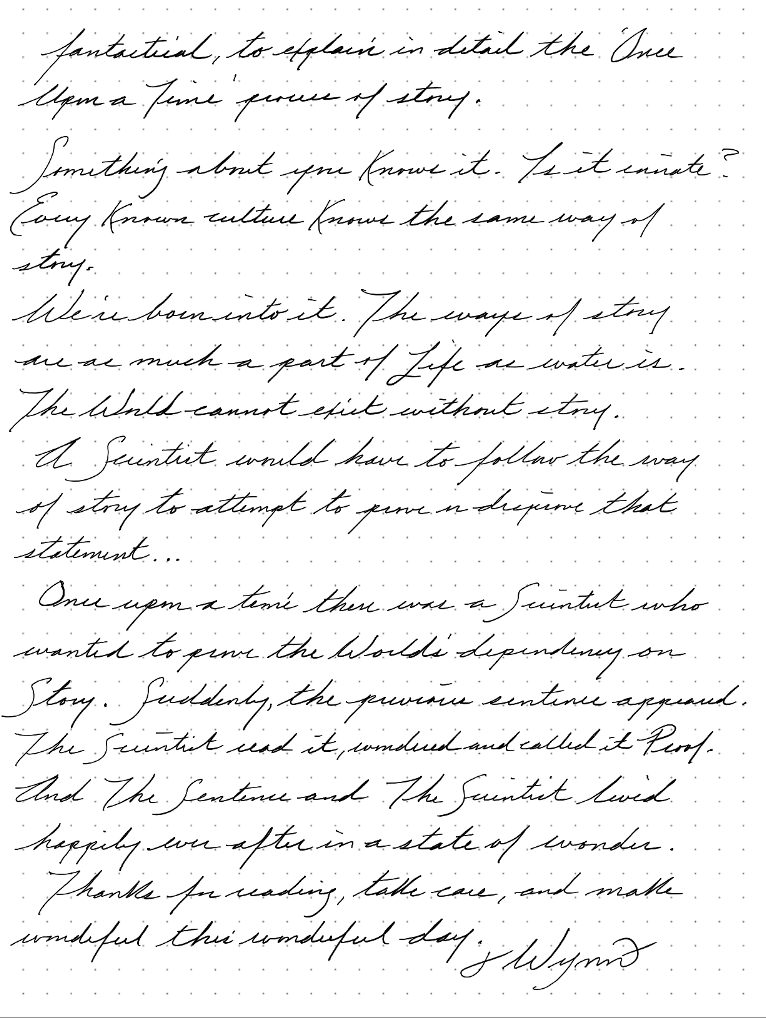 fantastical, to explain in detail the 'Once
Upon a Time' process of story.
Something about you Knows it. Is it innate?
Every Known culture Knows the same way of
story.
We're born into it. The ways of story
are as much a part of Life as water is.
The World cannot exist without story.
A Scientist would have to follow the way
of story to attempt to prove or disprove that
statement...
Once upon a time there was a Scientist who
wanted to prove the World's dependency on
Story. Suddenly, the previous sentence appeared.
The Scientist read it, wondered and called it Proof.
And The Sentence and The Scientist lived
happily ever after in a state of wonder.
Thanks for reading, take care, and make
wonderful this wonderful day.
Wynn